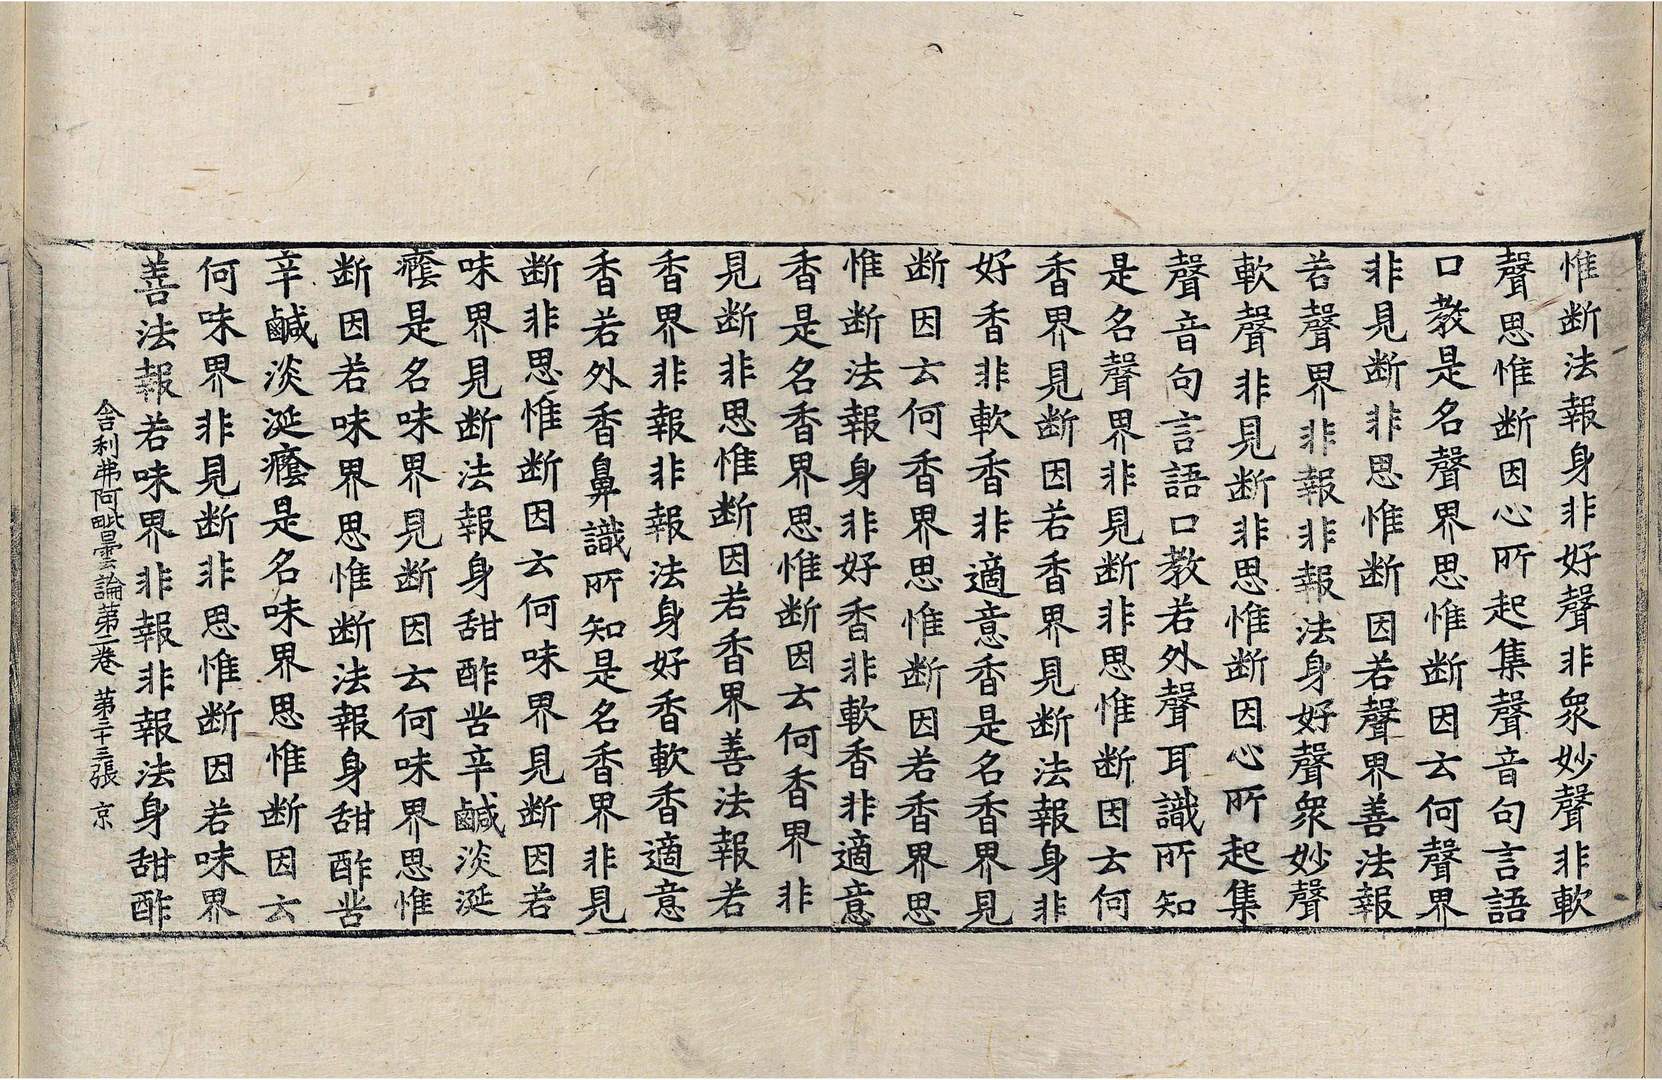 惟断法報身非好聲非衆妙聲非軟
聲思惟断因心所起集聲音句言語
口教是名聲界思惟断因云何聲界
非見断非思惟断因若聲界善法報
若聲界非報非報法身好聲衆妙聲
軟聲非見断非思惟断因心所起集
聲音句言語口教若外聲耳識所知
是名聲界非見断非思惟断因云何
香界見断因若香界見断法報身非
好香非軟香非適意香是名香界見
断因云何香界思惟断因若香界思
惟断法報身非好香非軟香非適意
香是名香界思惟断因云何香界非
見断非思惟断因若香界善法報若
香界非報非報法身好香軟香適意
香若外香鼻識所知是名香界非見
断非思惟断因云何味界見断因若
味界見断法報身甜酢苦辛鹹淡涎
癊是名味界見断因云何味界思惟
断因若味界思惟断法報身甜酢苦
辛鹹淡涎癊是名味界思惟断因云
何味界非見断非思惟断因若味界
善法報若味界非報非報法身甜酢
舍利弗阿毗曇論第二卷 第三十三張 京